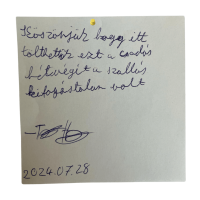 Köszönjük hogy itt
tölthettük ezt a csodás
hétvégét a szállás
kifogástalan volt
2024.07.28